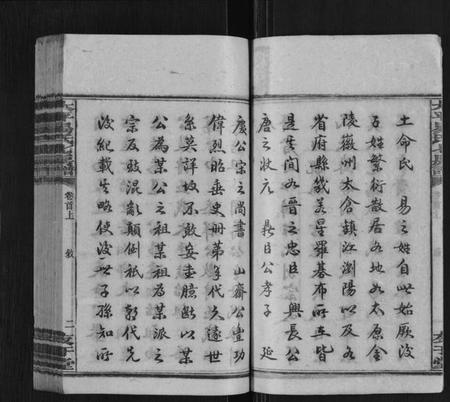 土命氏 易之姓自此始厥後
子姓繁衍散居各地如太原金
陵徽州太倉鎮江瀏陽以及各
省府縣幾若星羅碁布所在皆
是其間如晉之忠臣 興長公
唐之狀元 公孝子 延
慶公宗之尚書 山齋公豐功
偉烈昭垂史册第年代久遠世
系莫詳故不敢妄臆斷以某
公為某公之祖某祖為某派之
宗反致混亂顛倒祇以朝代先
後紀載其略使後世子孫知所
卷首上
敘
二